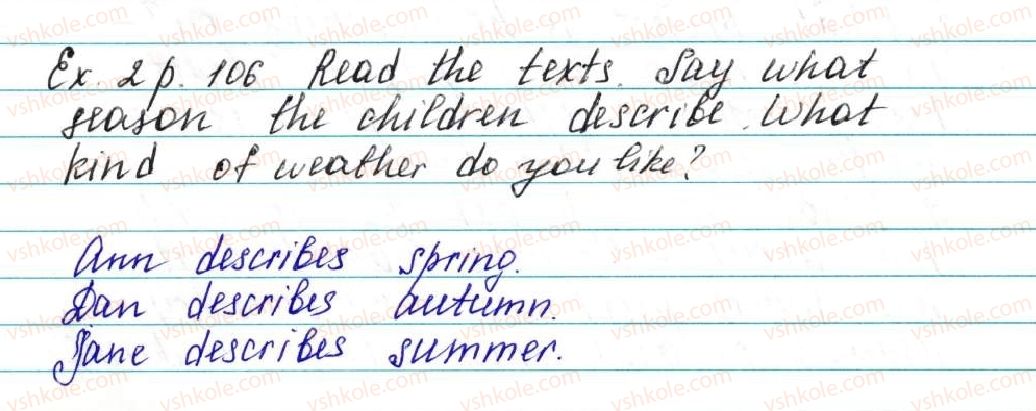 Ex. 2 p. 106 Read the texts. Say what
season the children describe. What
kind of weather do you like?
Ann describes spring.
Dan describes autumn.
Jane describes summer.